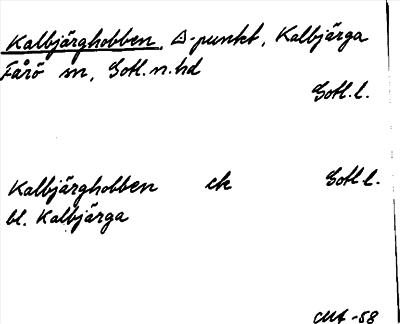 Kalbjärghobben, △-punkt, Kalbjärga
Fårö sn, Gotl. n. hd
Gotl. l.
Kalbjärghobben ek Gotl l.
bl. Kalbjärga
-58